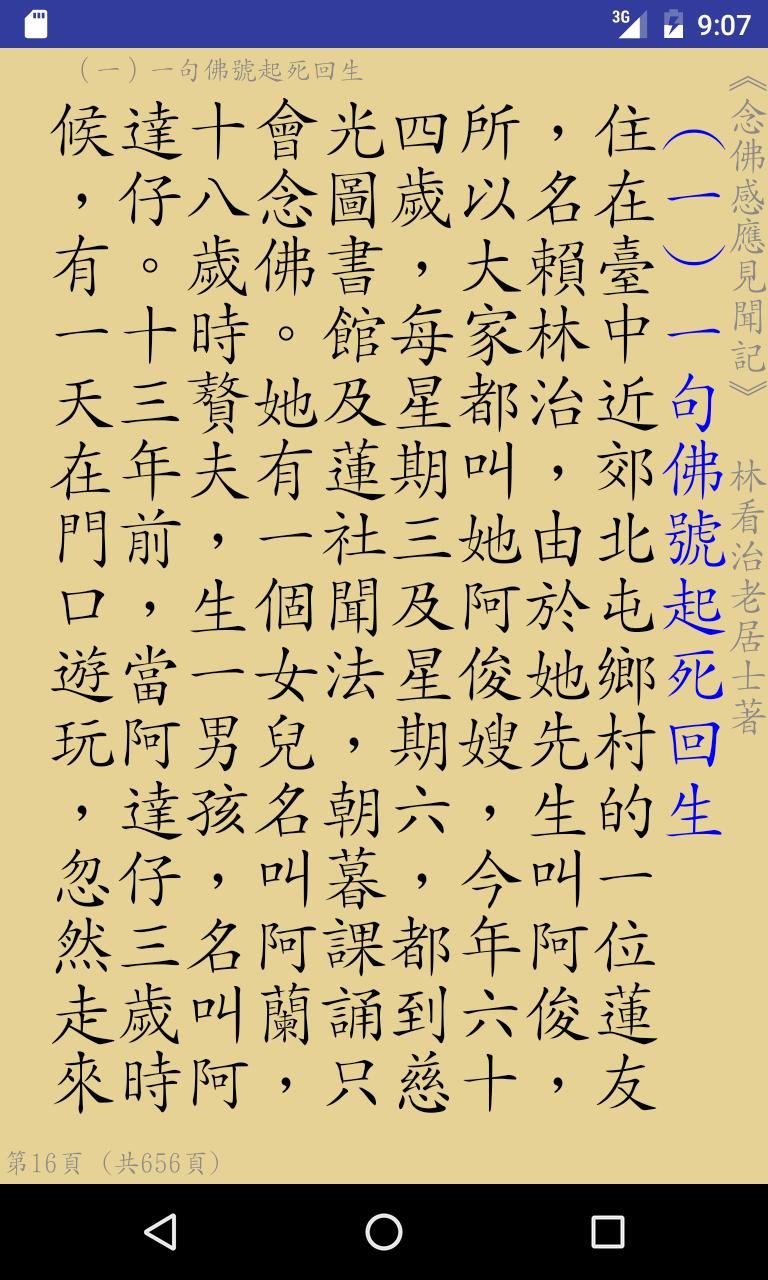 3G 9:07
（一）一句佛號起死回生
《念佛感應見聞記》 林看治老居士著
（一）一句佛號起死回生
住在臺中近郊北屯鄉村的一位蓮友
，名賴林治，由於她先生叫阿俊，
所以大家都叫她阿俊嫂，今年六十
四歲，每星期三及星期六，都到慈
光圖書館及蓮社聞法，朝暮課誦只
會念佛。她有一個女兒名叫阿蘭，
十八歲時贅夫，生一男孩，名叫阿
達仔。十三年前，當阿達仔三歲時
候，有一天在門口遊玩，忽然走來
第16頁（共656頁）